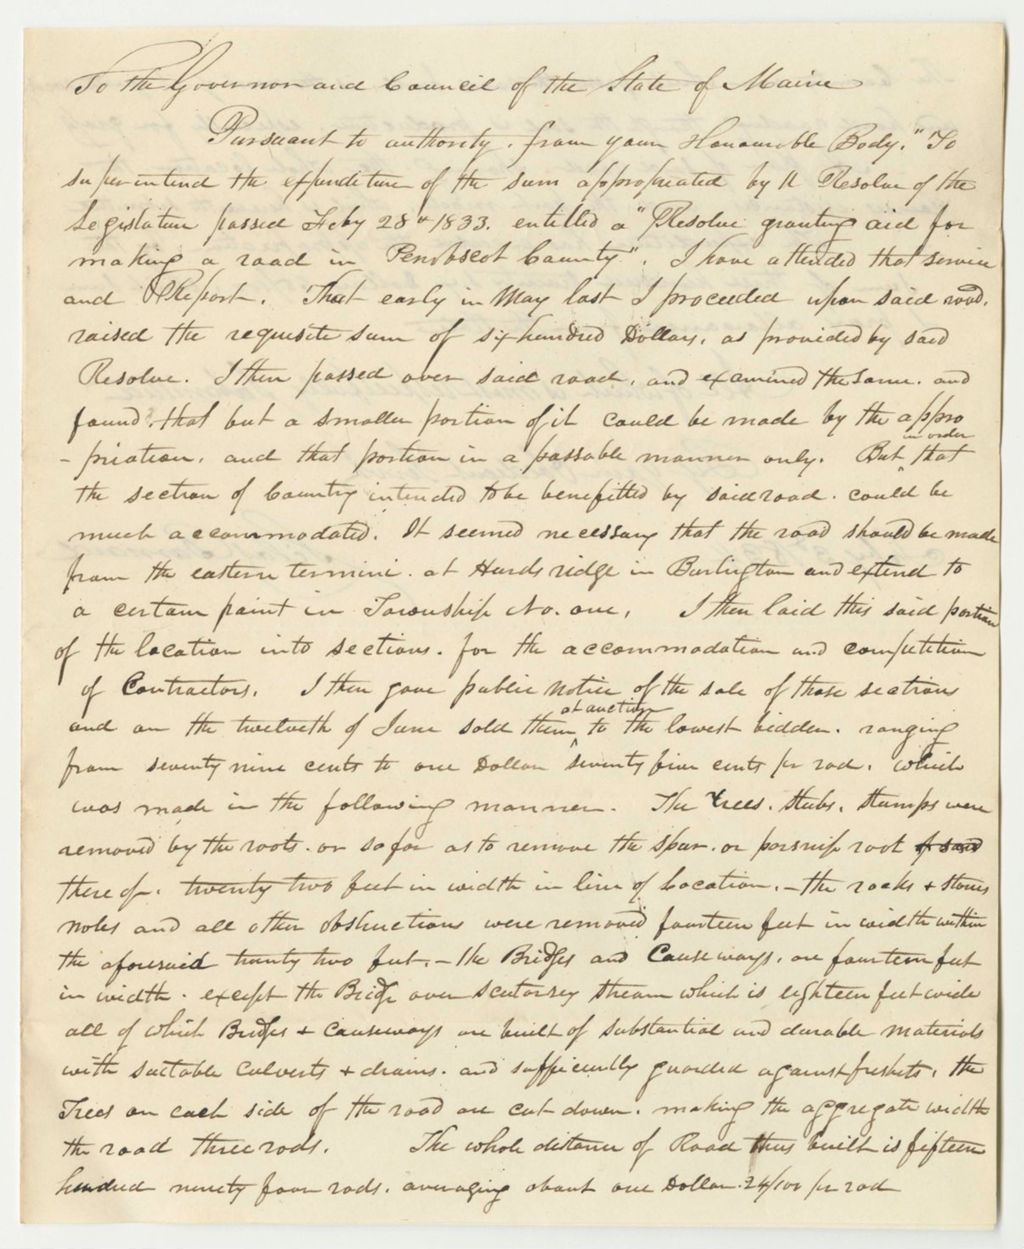 To the Governor and Council of the State of Maine
Pursuant to authority. from your Honourable Body. "To
superintend the expenditure of the sum appropriated by a Resolve of the
Legislature passed Feby 28th 1833. entitled a "Resolve granting aid for
making a road in Penobscot County". I have attended that service
and Report. That early in May last I proceeded upon said road.
raised the requisite sum of six hundred Dollars, as provided by said
Resolve. I then passed over said road, and examined the same. and
found, that but a smaller portion of it could be made by the appro
-priation, and that portion in a passable manner only. But in order that
the section of Country intended to be benefitted by said road. could be
much accommodated. It seemed necessary that the road should be made
from the eastern termini. at Hurds ridge in Burlington and extend to
a certain point in Township No. one, I then laid this said portion
of the location into sections. for the accommodation and competition
of Contractors. I then gave public notice of the sale of those sections
and on the twelveth of June sold them at auction to the lowest bidder. ranging
from seventy nine cents to one Dollar seventy five cents pr rod. which
was made in the following manner. The trees. stubs. stumps were
removed by the roots. or so far as to remove the spur. or parsnip root
thereof. twenty two feet in width in line of Location. - the rocks + stones
noles and all other obstructions were removed fourteen feet in width within
the aforesaid twenty two feet. - the Bridges and Causeways, are fourteen feet
in width. except the Bridge over scutarsey stream which is eighteen feet wide
all of which Bridges + causeways are built of substantial and durable materials
with suitable culverts + drains. and sufficiently guarded against freshets, the
Trees on each side of the road are cut down. making the aggregate width
the road three rods. The whole distance of Road thus built is fifteen
hundred ninety four rods. averaging about one Dollar 24/100 pr rod